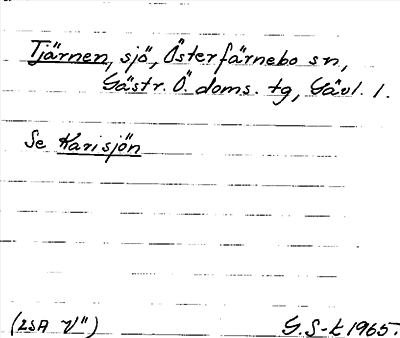 Tjärnen, sjö, Österfärnebo sn,
Gästr. Ö. doms. tg, Gävl. l.
Se Karisjön
(LSA V")
G. S-k 1965.